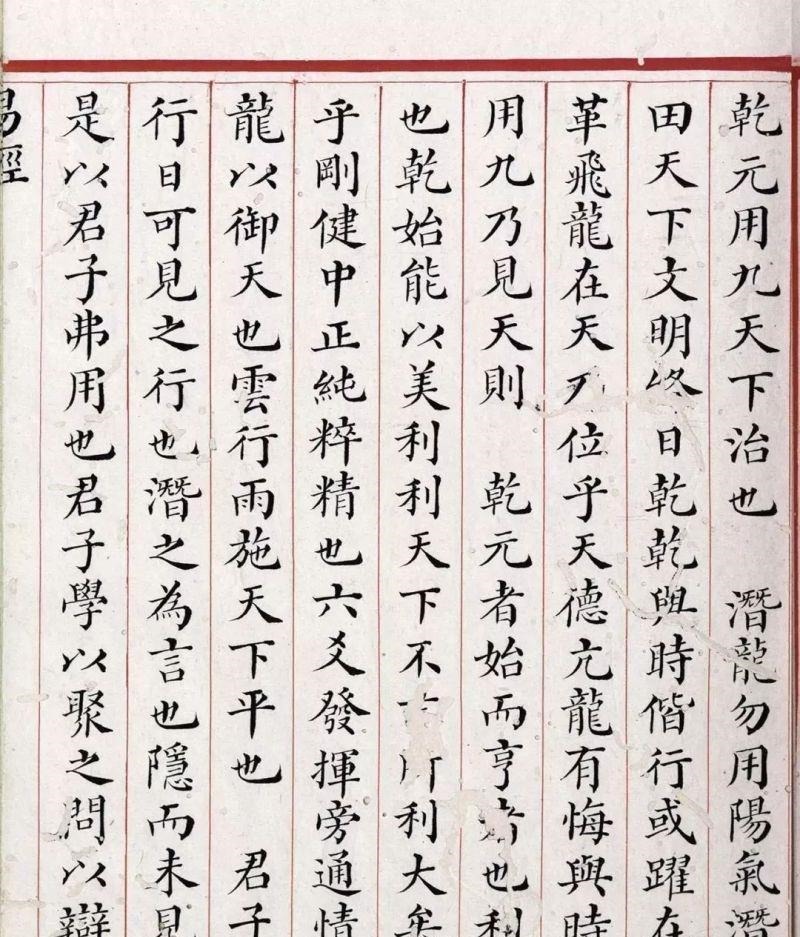 乾元用九天下治也　潛龍勿用陽氣潛
田天下文明終日乾乾與時偕行或躍在
革飛龍在天乃位乎天德亢龍有悔與時
用九乃見天則　乾元者始而亨者也利
也乾始能以美利利天下不利大矣
乎剛健中正純粹精也六爻發揮旁通情
龍以御天也雲行雨施天下平也　君子
行日可見之行也潛之為言也隱而未見
是以君子弗用也君子學以聚之問以辯
易經